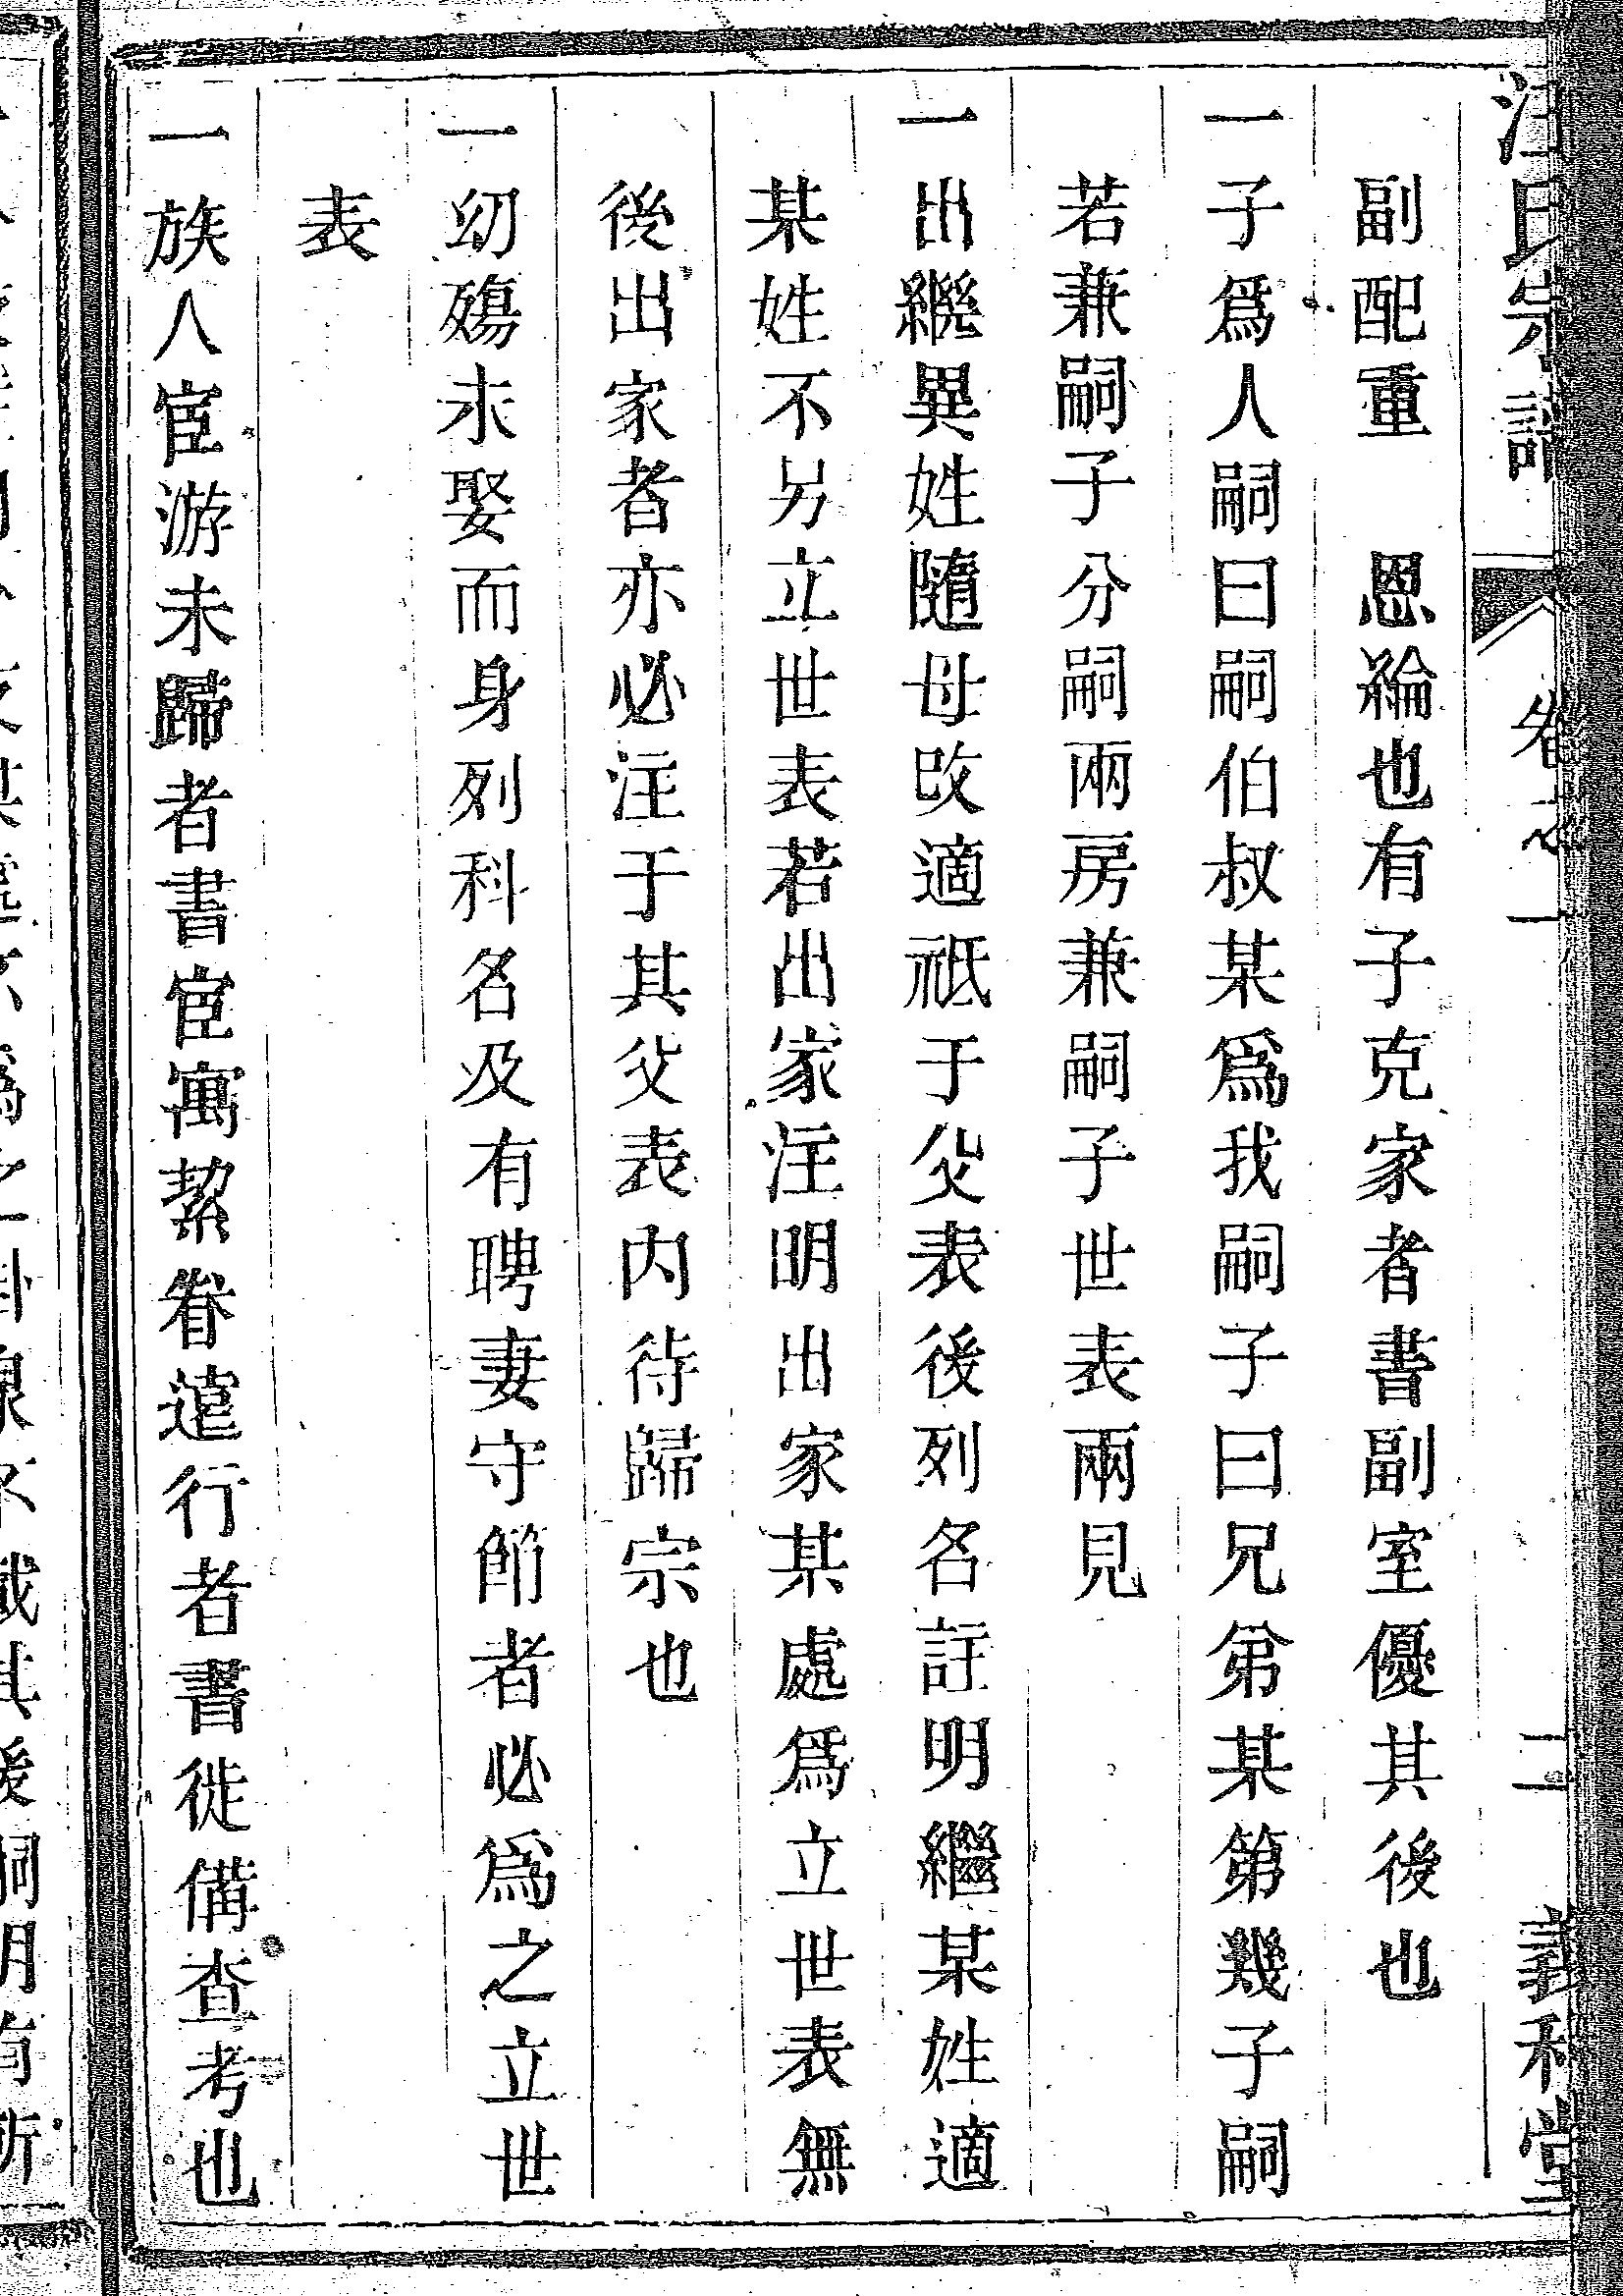 汪氏宗譜 卷之一 二 義和堂
副配重 恩綸也有子克家者書副室優其後也
一子爲人嗣曰嗣伯叔某爲我嗣子曰兄弟某第幾子嗣
若兼嗣子分嗣兩房兼嗣子世表兩見
一出繼異姓隨母改適祗于父表後列名註明繼某姓適
某姓不另立世表若出家注明出家某處爲立世表無
後出家者亦必注于其父表内待歸宗也
一幼殤未娶而身列科名及有聘妻守節者必爲之立世
表
一族人宦游未歸者書宦寓絜眷遠行者書徙備查考也